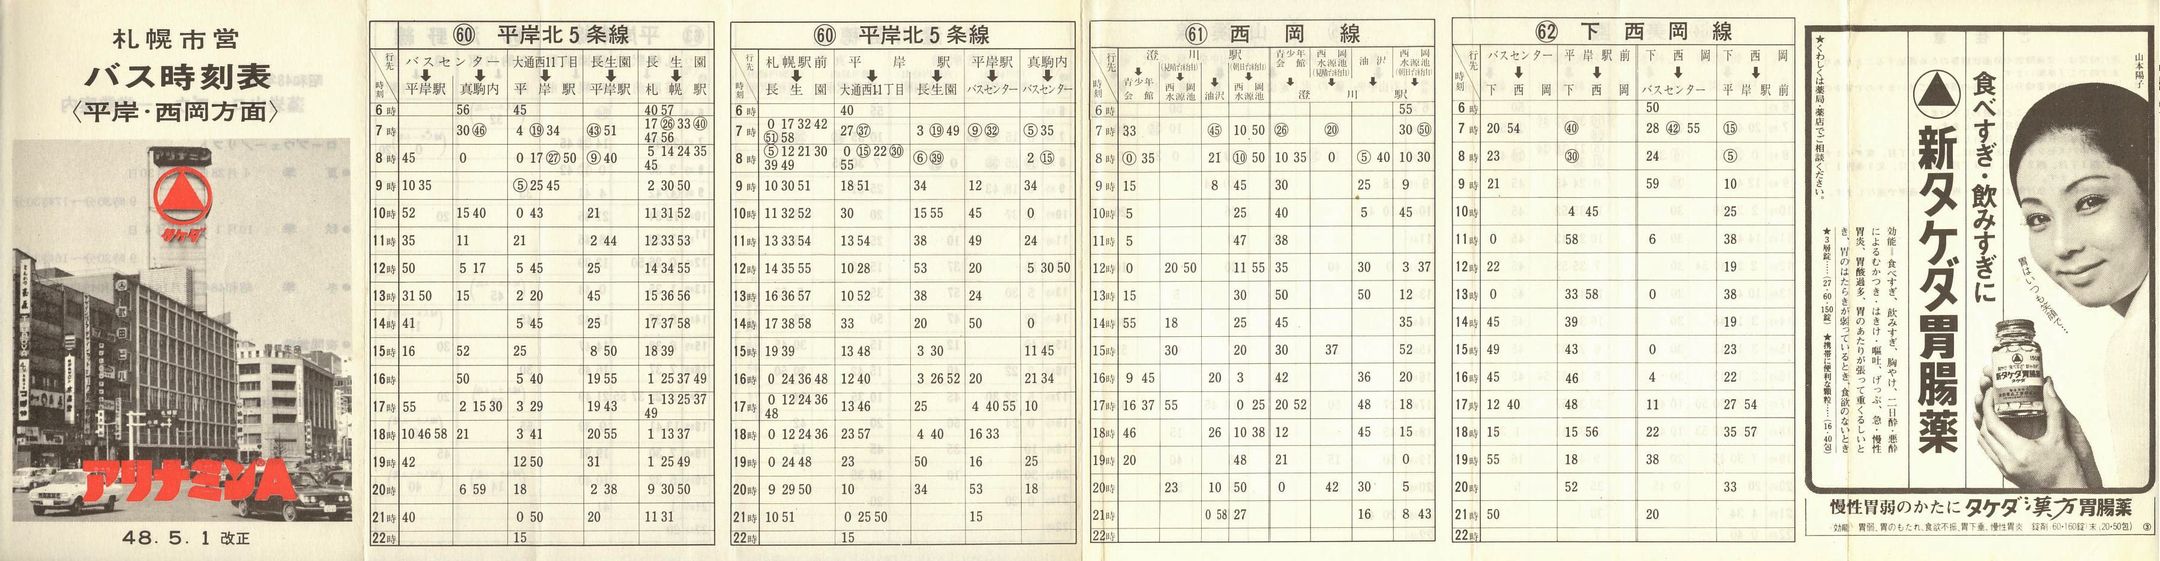 札幌市営
バス時刻表
〈平岸・西岡方面〉
アリナミン
タケダ
アリナミンA
48.5.1 改正
60 平岸北5条線
行先 時刻
バスセンター→平岸駅 バスセンター→真駒内 大通西11丁目→平岸駅 長生園→平岸駅 長生園→札幌駅
6時 | | 56 | 45 | | 40 57
7時 | | 30 ㊻ | 4 ⑲ 34 | ㊸ 51 | 17 ㉖ 33 ㊵ 47 56
8時 | 45 | 0 | 0 17 ㉗ 50 | ⑨ 40 | 5 14 24 35 45
9時 | 10 35 | | ⑤ 25 45 | | 2 30 50
10時 | 52 | 15 40 | 0 43 | 21 | 11 31 52
11時 | 35 | 11 | 21 | 2 44 | 12 33 53
12時 | 50 | 5 17 | 5 45 | 25 | 14 34 55
13時 | 31 50 | 15 | 2 20 | 45 | 15 36 56
14時 | 41 | | 5 45 | 25 | 17 37 58
15時 | 16 | 52 | 25 | 8 50 | 18 39
16時 | | 50 | 5 40 | 19 55 | 1 25 37 49
17時 | 55 | 2 15 30 | 3 29 | 19 43 | 1 13 25 37 49
18時 | 10 46 58 | 21 | 3 41 | 20 55 | 1 13 37
19時 | 42 | | 12 50 | 31 | 1 25 49
20時 | | 6 59 | 18 | 2 38 | 9 30 50
21時 | 40 | | 0 50 | 20 | 11 31
22時 | | | 15 | |
60 平岸北5条線
行先 時刻
札幌駅前→長生園 平岸駅→大通西11丁目 平岸駅→長生園 平岸駅→バスセンター 真駒内→バスセンター
6時 | | 40 | | |
7時 | 0 17 32 42 �51 58 | 27 ㊲ | 3 ⑲ 49 | ⑨ ㉜ | ⑤ 35
8時 | ⑤ 12 21 30 39 49 | 0 ⑮ 22 ㉚ 55 | ⑥ ㊴ | | 2 ⑮
9時 | 10 30 51 | 18 51 | 34 | 12 | 34
10時 | 11 32 52 | 30 | 15 55 | 45 | 0
11時 | 13 33 54 | 13 54 | 38 | 49 | 24
12時 | 14 35 55 | 10 28 | 53 | 20 | 5 30 50
13時 | 16 36 57 | 10 52 | 38 | 24 |
14時 | 17 38 58 | 33 | 20 | 50 | 0
15時 | 19 39 | 13 48 | 3 30 | | 11 45
16時 | 0 24 36 48 | 12 40 | 3 26 52 | 20 | 21 34
17時 | 0 12 24 36 48 | 13 46 | 25 | 4 40 55 | 10
18時 | 0 12 24 36 | 23 57 | 4 40 | 16 33 |
19時 | 0 24 48 | 23 | 50 | 16 | 25
20時 | 9 29 50 | 10 | 34 | 53 | 18
21時 | 10 51 | 0 25 50 | | 15 |
22時 | | 15 | | |
61 西岡線
行先 時刻
澄川駅→青少年会館 (見晴台経由)西岡水源池 油沢 (朝日台経由)西岡水源池
青少年会館 西岡水源池(見晴台経由) 油沢 西岡水源池(朝日台経由)→澄川駅
6時 | | | | | | | | 55
7時 | 33 | | ㊺ | 10 50 | ㉖ | ⑳ | | 30 ㊿
8時 | ⓪ 35 | | 21 | ⑩ 50 | 10 35 | 0 | ⑤ 40 | 10 30
9時 | 15 | | 8 | 45 | 30 | | 25 | 9
10時 | 5 | | | 25 | 40 | | 5 | 45
11時 | 5 | | | 47 | 38 | | |
12時 | 0 | 20 50 | | 11 55 | 35 | | 30 | 3 37
13時 | 15 | 5 | | 30 | 50 | | 50 | 12
14時 | 55 | 18 | | 25 | 45 | | | 35
15時 | | 30 | | 20 | 30 | 37 | | 52
16時 | 9 45 | | 20 | 3 | 42 | | 36 | 20
17時 | 16 37 | 55 | | 0 25 | 20 52 | | 48 | 18
18時 | 46 | | 26 | 10 38 | 12 | | 45 | 15
19時 | 20 | | | 48 | 21 | | | 0
20時 | | 23 | 10 | 50 | 0 | 42 | 30 | 5
21時 | | | 0 58 | 27 | | | 16 | 8 43
22時
62 下西岡線
行先 時刻
バスセンター→下西岡 平岸駅前→下西岡 下西岡→バスセンター 下西岡→平岸駅前
6時 | | | 50 |
7時 | 20 54 | ㊵ | 28 ㊷ 55 | ⑮
8時 | 23 | ㉚ | 24 | ⑤
9時 | 21 | | 59 | 10
10時 | | 4 45 | | 25
11時 | 0 | 58 | 6 | 38
12時 | 22 | | | 19
13時 | 0 | 33 58 | 0 | 38
14時 | 45 | 39 | | 19
15時 | 49 | 43 | 0 | 23
16時 | 45 | 46 | 4 | 22
17時 | 12 40 | 48 | 11 | 27 54
18時 | 15 | 15 56 | 22 | 35 57
19時 | 55 | 18 9 | 38 |
20時 | | 52 | | 33
21時 | 50 | | 20 |
22時
山本陽子
食べすぎ・飲みすぎに
新タケダ胃腸薬
胃はいつも笑顔で…
★くわしくは薬局・薬店でご相談ください。
効能―食べすぎ、飲みすぎ、胸やけ、二日酔・悪酔
によるむかつき・はきけ・嘔吐、げっぷ、急・慢性
胃炎、胃酸過多、胃のあたりが張って重くるしいと
き、胃のはたらきが弱っているとき、食欲のないとき
★3層錠……(27・60・150錠) ★携帯に便利な顆粒……(16・40包)
新タケダ胃腸薬
タケダ
慢性胃弱のかたに タケダ漢方胃腸薬
効能 胃弱、胃のもたれ、食欲不振、胃下垂、慢性胃炎 錠剤(60・160錠)末(20・50包)
③